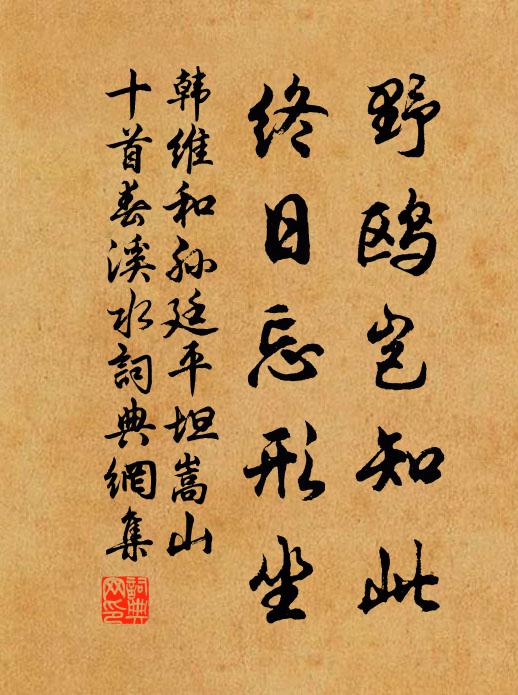 野鸥岂知此
终日忘形坐
韩维和孙廷平坦嵩山
十首春溪水詞典網集
詞典网印